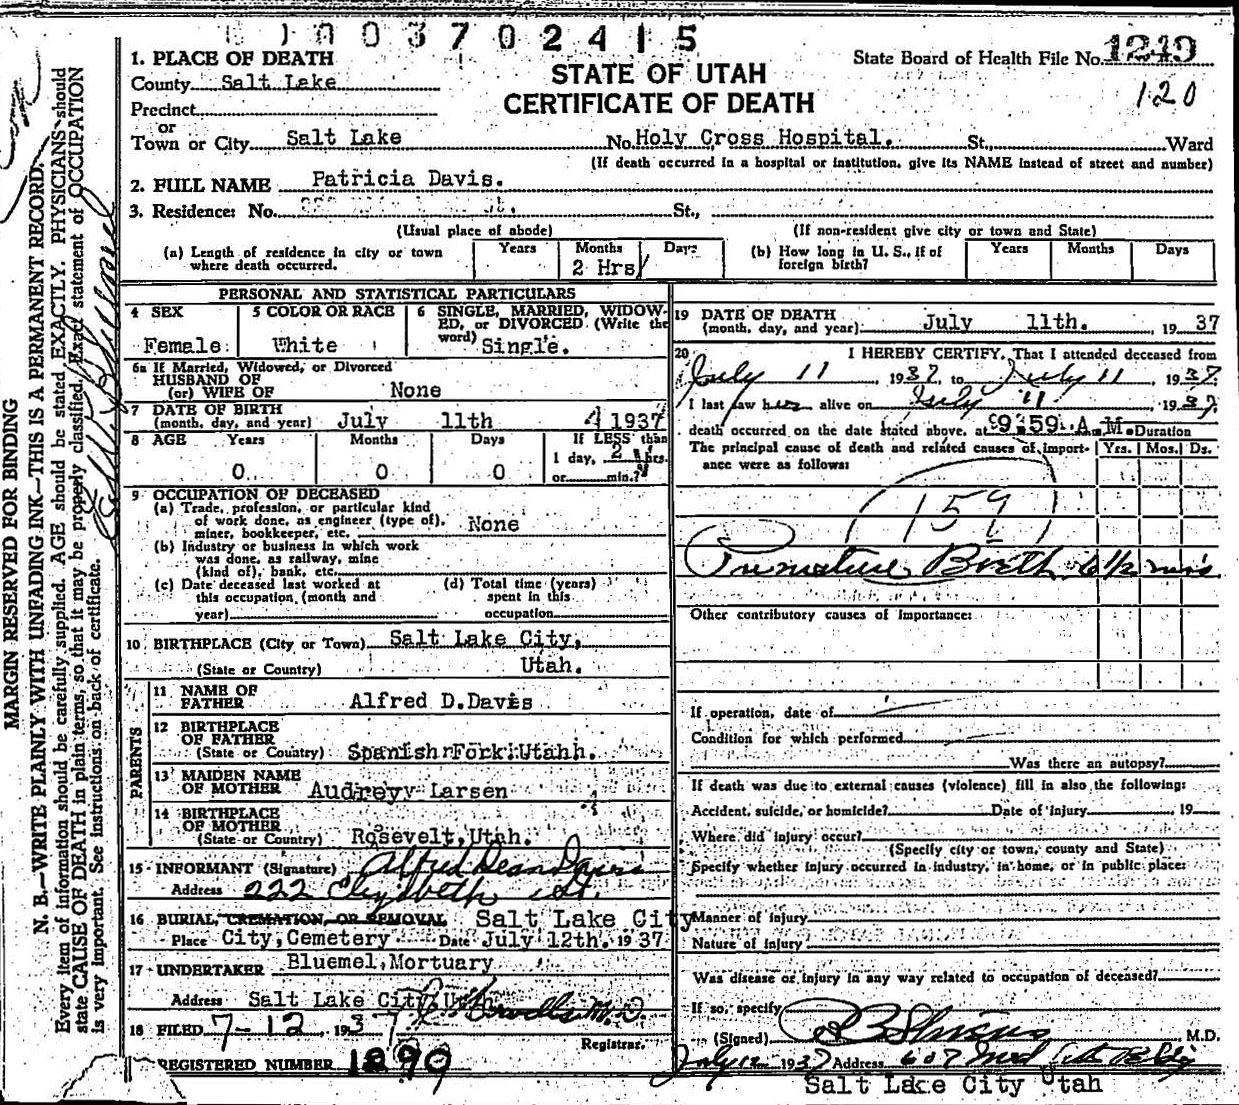 1003702415
1. PLACE OF DEATH
County Salt Lake
Precinct
or
Town or City Salt Lake No. Holy Cross Hospital. St., Ward
STATE OF UTAH
CERTIFICATE OF DEATH
State Board of Health File No. 1249
120
(If death occurred in a hospital or institution, give its NAME instead of street and number)
2. FULL NAME Patricia Davis.
3. Residence: No. St.,
(Usual place of abode) (If non-resident give city or town and State)
(a) Length of residence in city or town where death occurred. Years Months Days 2 Hrs/
(b) How long in U. S., if of foreign birth? Years Months Days
PERSONAL AND STATISTICAL PARTICULARS
4 SEX Female
5 COLOR OR RACE White
6 SINGLE, MARRIED, WIDOWED, or DIVORCED (Write the word) Single.
6a If Married, Widowed, or Divorced
HUSBAND OF
(or) WIFE OF None
7 DATE OF BIRTH
(month, day, and year) July 11th 1937
8 AGE Years Months Days If LESS than
1 day, 2 hrs.
0 0 0 or min.?
9 OCCUPATION OF DECEASED
(a) Trade, profession, or particular kind
of work done, as engineer (type of),
miner, bookkeeper, etc. None
(b) Industry or business in which work
was done, as railway, mine
(kind of), bank, etc.
(c) Date deceased last worked at
this occupation (month and
year)
(d) Total time (years)
spent in this
occupation
10 BIRTHPLACE (City or Town) Salt Lake City,
(State or Country) Utah.
PARENTS
11 NAME OF
FATHER Alfred D.Davis
12 BIRTHPLACE
OF FATHER
(State or Country) Spanish Fork Utahh.
13 MAIDEN NAME
OF MOTHER Audreyy Larsen
14 BIRTHPLACE
OF MOTHER
(State or Country) Rosevelt,Utah.
15 INFORMANT (Signature) Alfred Dean Davis
Address 222 Elizabeth St.
16 BURIAL, CREMATION, OR REMOVAL Salt Lake City
Place City,Cemetery Date July 12th. 1937
17 UNDERTAKER Bluemel,Mortuary
Address Salt Lake City,Utah
18 FILED 7-12, 1937 M.D.
Registrar.
REGISTERED NUMBER 1890
19 DATE OF DEATH
(month, day, and year) July 11th. 1937
20 I HEREBY CERTIFY, That I attended deceased from
July 11, 1937, to July 11, 1937
I last saw her alive on July 11, 1937
death occurred on the date stated above, at 9:59 A.M.
Duration
The principal cause of death and related causes of importance were as follows: Yrs. Mos. Ds.
159
Premature Birth 6 1/2 mos
Other contributory causes of importance:
If operation, date of
Condition for which performed
Was there an autopsy?
If death was due to external causes (violence) fill in also the following:
Accident, suicide, or homicide? Date of injury 19
Where did injury occur?
(Specify city or town, county and State)
Specify whether injury occurred in industry, in home, or in public place:
Manner of injury
Nature of injury
Was disease or injury in any way related to occupation of deceased?
If so, specify
(Signed) M.D.
July 12 1937 Address 607 Med Arts Bldg
Salt Lake City Utah
MARGIN RESERVED FOR BINDING
N. B.—WRITE PLAINLY WITH UNFADING INK—THIS IS A PERMANENT RECORD.
Every item of information should be carefully supplied. AGE should be stated EXACTLY. PHYSICIANS should
state CAUSE OF DEATH in plain terms, so that it may be properly classified. Exact statement of OCCUPATION
is very important. See instructions on back of certificate.